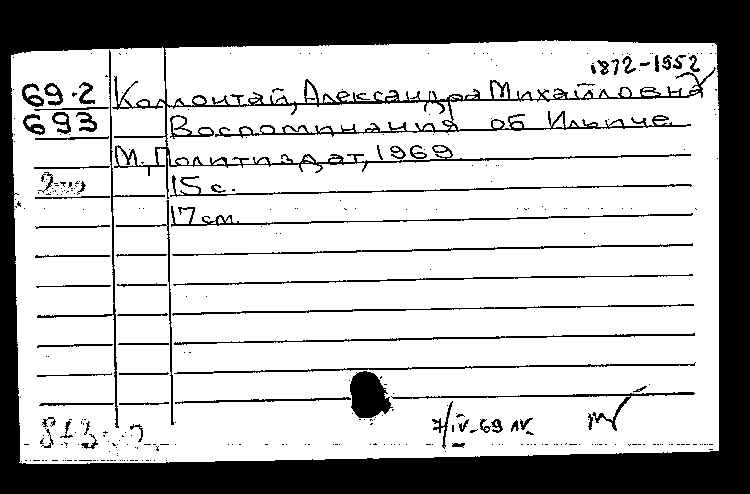 1872-1952
69.2 Коллонтай, Александра Михайловна
693 Воспоминания об Ильиче
М., Политиздат, 1969
15 с.
17 см.
7/IV-69